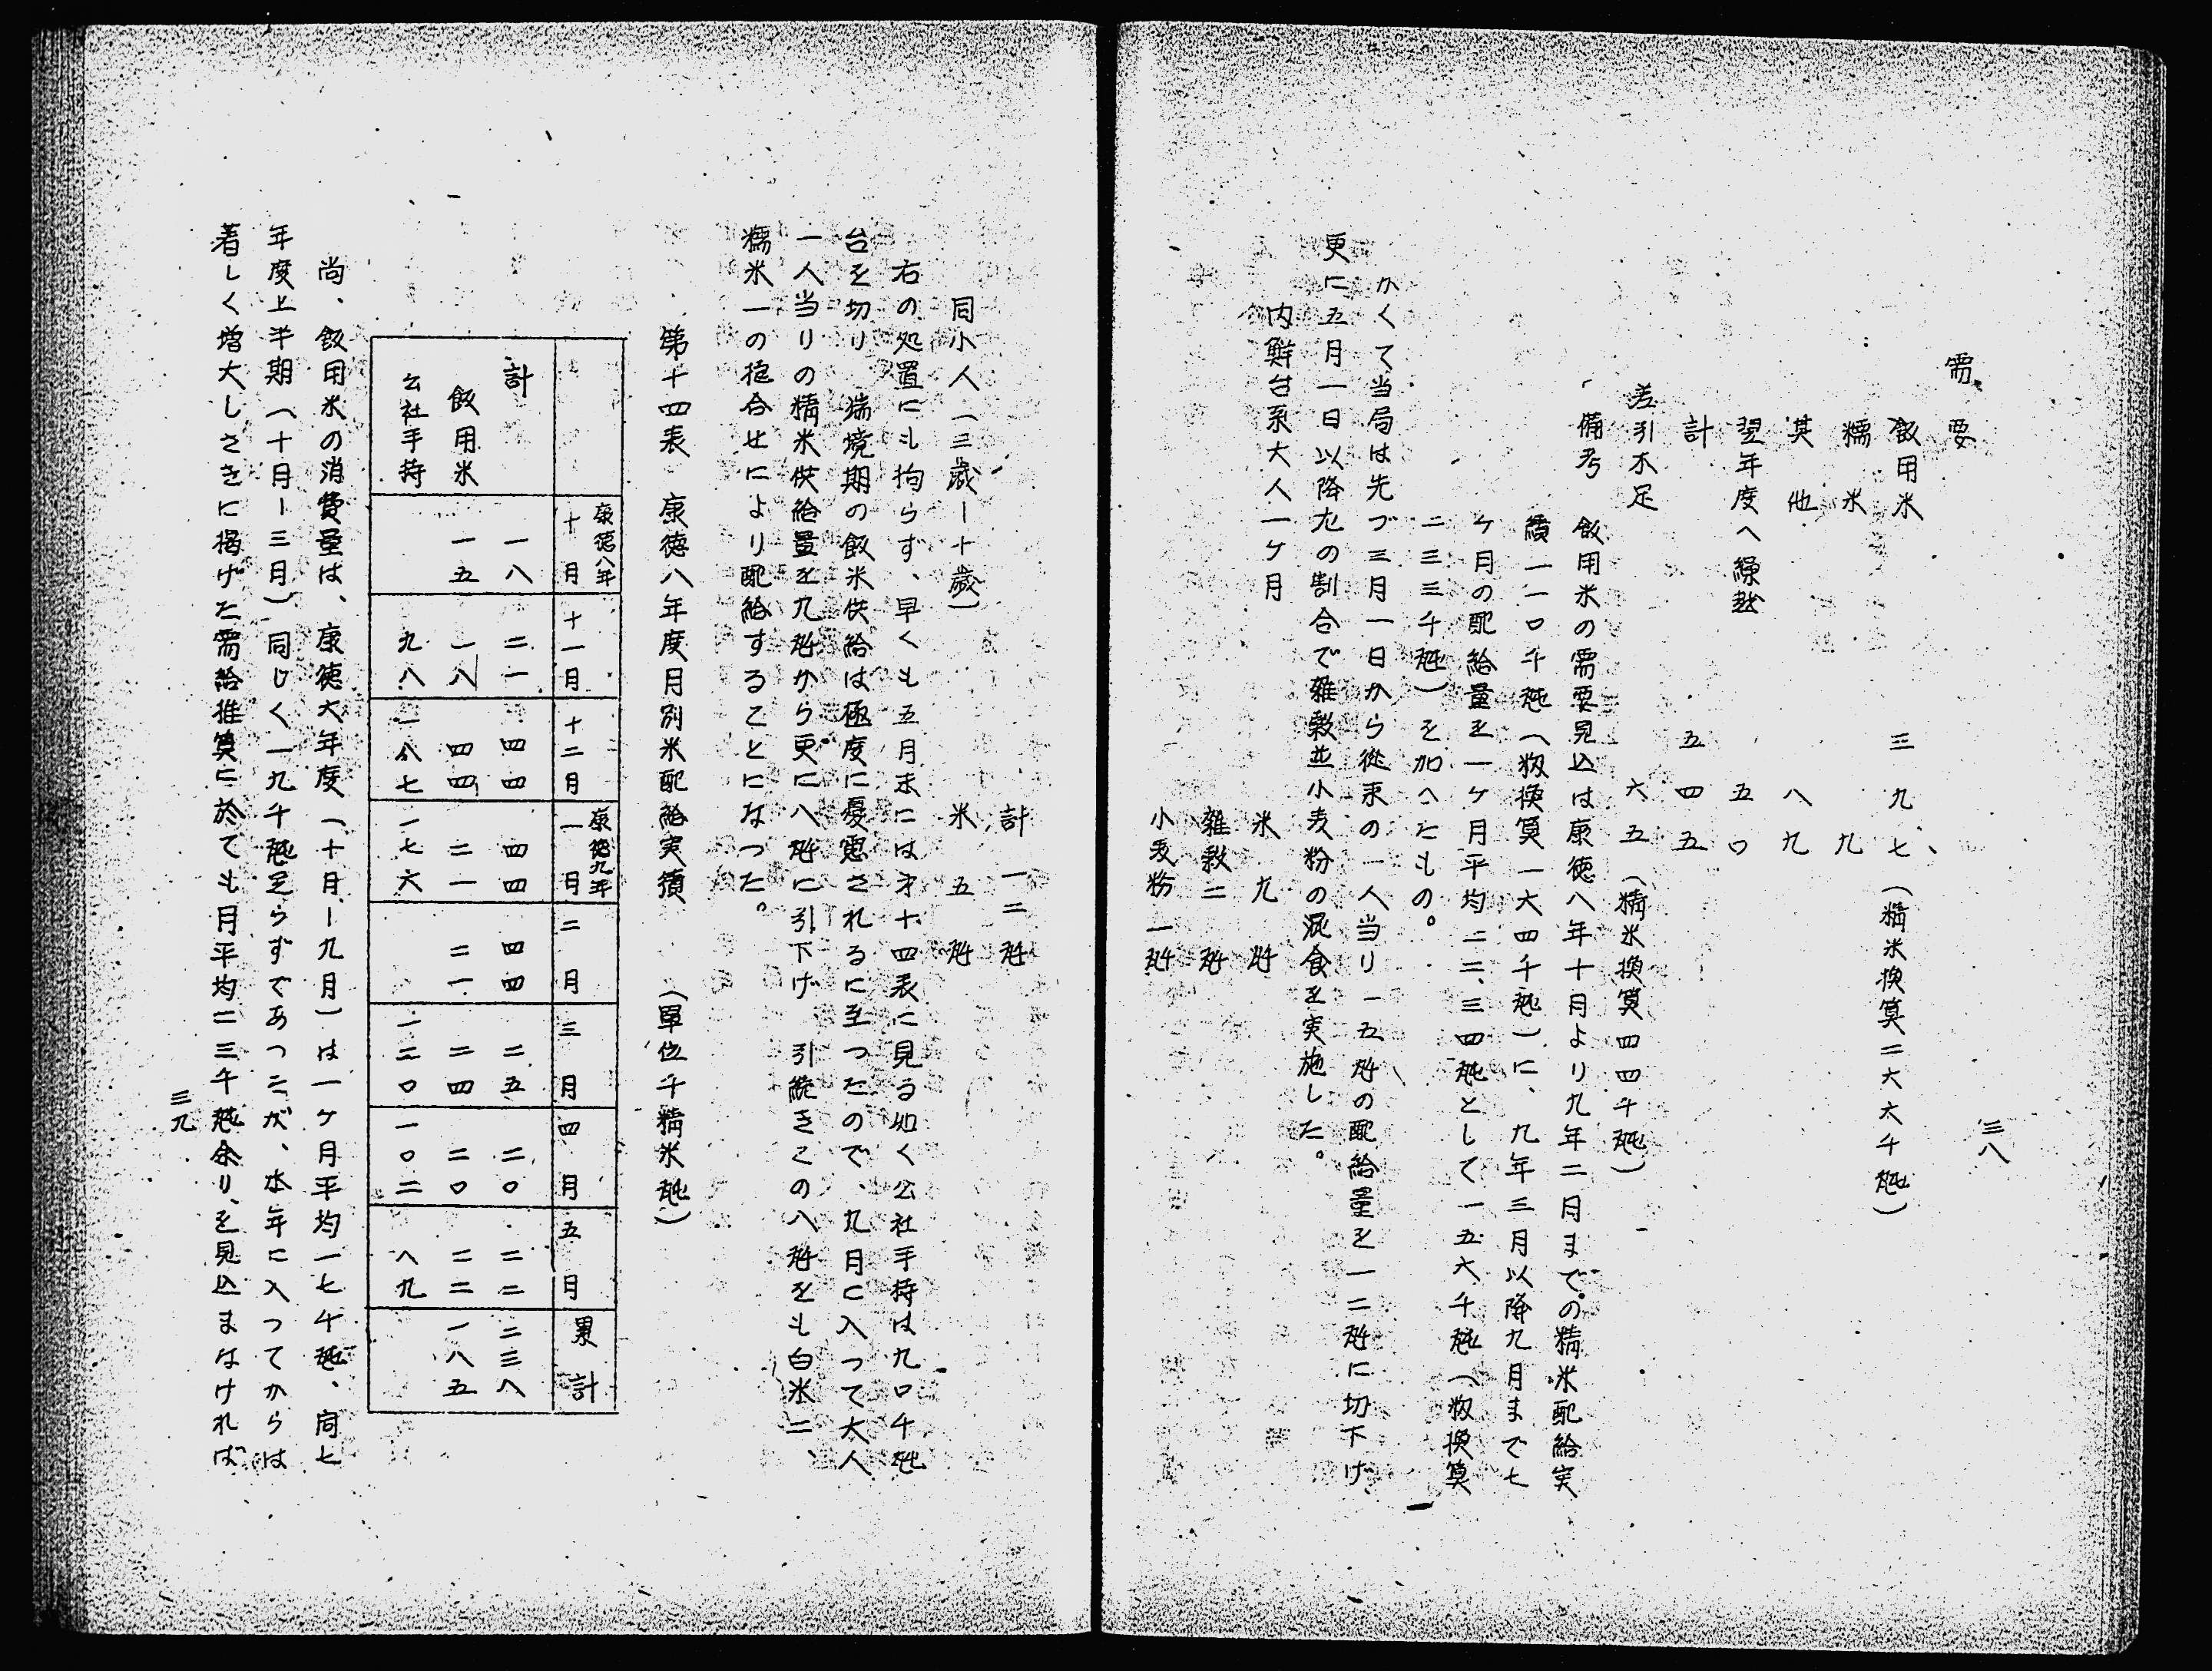 三八
需要
飯用米 三九七（精米換算二六六千瓲）
糯米 九
其他 八九
翌年度へ繰越 五〇
計 五四五
差引不足 六五（精米換算四四千瓲）
備考 飯用米の需要見込は康徳八年十月より九年二月までの精米配給実
績一一〇千瓲（籾換算一六四千瓲）に、九年三月以降九月まで七
ヶ月の配給量を一ヶ月平均二二、三四瓲として一五六千瓲（籾換算
二三三千瓲）を加へたもの。
かくて当局は先づ三月一日から従来の一人当り一五瓩の配給量を一二瓩に切下げ
更に五月一日以降九の割合で雑穀並小麦粉の混食を実施した。
内鮮台系大人一ヶ月
米九瓩
雑穀二瓩
小麦粉一瓩
計一二瓩
同小人（三歳ー十歳） 米五瓩
右の処置にも拘らず、早くも五月末には才十四表に見る如く公社手持は九〇千瓲
台を切り 端境期の飯米供給は極度に憂慮されるに至つたので、九月に入つて大人
一人当りの精米供給量を九瓩から更に八瓩に引下げ 引続きこの八瓩をも白米二、
糯米一の抱合せにより配給することになつた。
第十四表 康徳八年度月別米配給実績 （単位千精米瓲）
康徳八年十月 十一月 十二月 康徳九年一月 二月 三月 四月 五月 累計
計 一八 二一 四四 四四 四四 二五 二〇 二二 二三八
飯用米 一五 一八 四四 二一 二一 二四 二〇 二二 一八五
公社手持 九八 一八七 一七六 一二〇 一〇二 八九
尚、飯用米の消費量は、康徳六年度（十月ー九月）は一ヶ月平均一七千瓲、同七
年度上半期（十月ー三月）同じく一九千瓲足らずであつたが、本年に入つてからは
著しく増大しさきに掲げた需給推算に於ても月平均二三千瓲余りを見込まなければ
三九